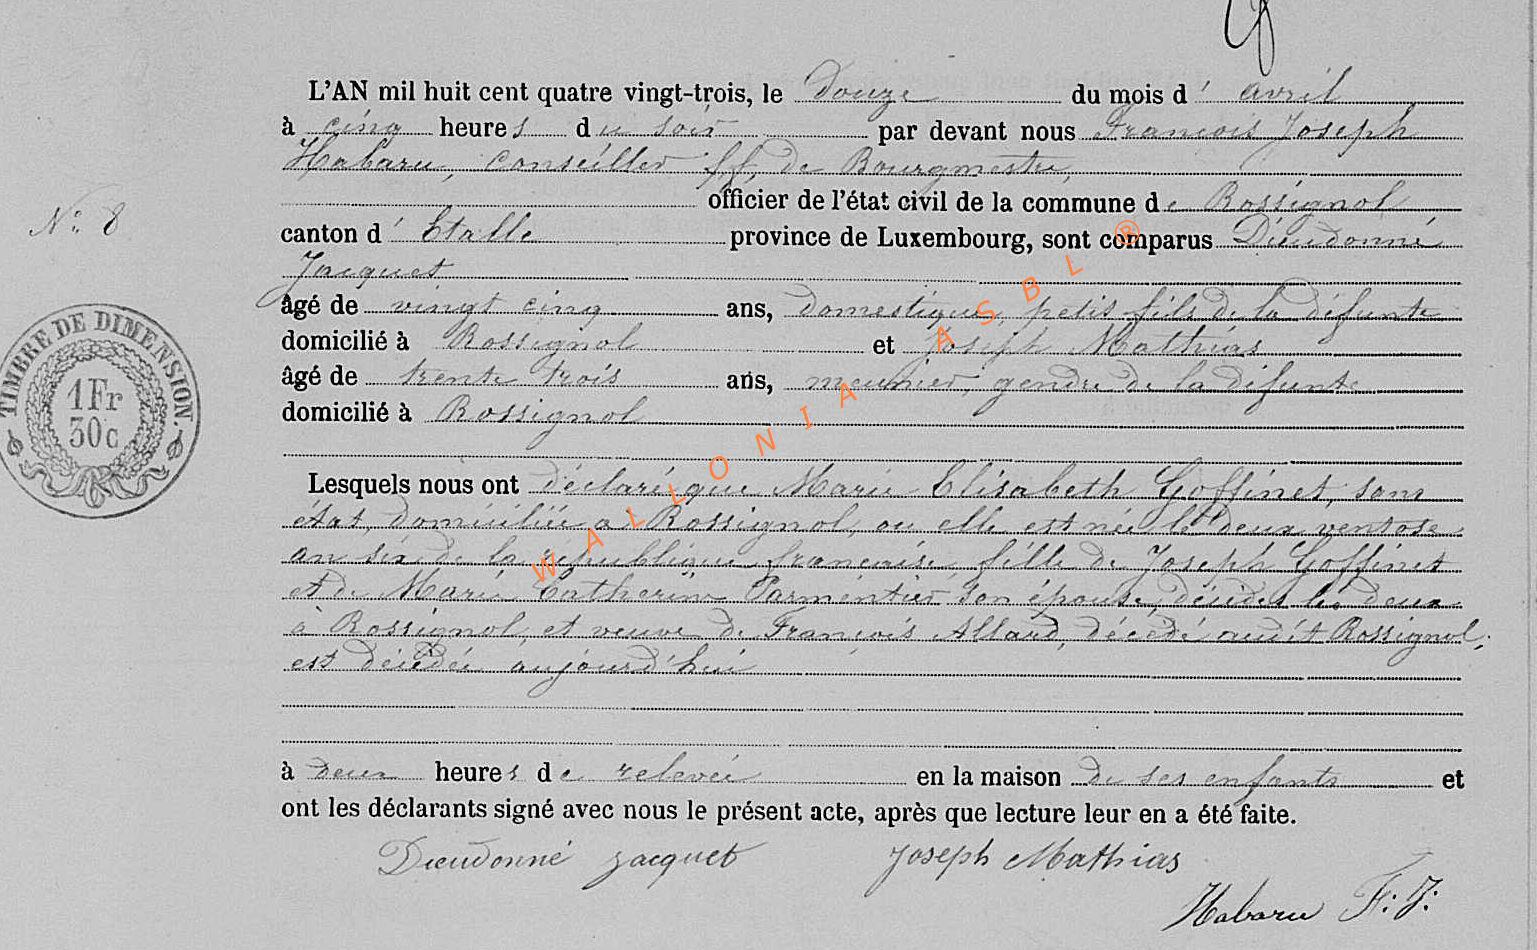 L'AN mil huit cent quatre vingt-trois, le douze du mois d' avril
à cinq heures du soir par devant nous François Joseph
Habaru, conseiller f.f. de Bourgmestre,
officier de l'état civil de la commune de Rossignol
N° 8
canton d' Etalle province de Luxembourg, sont comparus Dieudonné
Jacquet
âgé de vingt cinq ans, domestique, petis fils de la défunte
domicilié à Rossignol et Joseph Mathias
âgé de trente trois ans, meunier, gendre de la défunte
domicilié à Rossignol
TIMBRE DE DIMENSION.
1Fr
30c
Lesquels nous ont déclaré que Marie Elisabeth Goffinet, sans
état, domiciliée a Rossignol, ou elle est née le deux ventose
an six de la république française, fille de Joseph Goffinet
et de Marie Catherine Parmentier son épouse, décédés les deux
à Rossignol, et veuve de François Allard, décédé audit Rossignol,
est décédée aujourd'hui
à deux heures de relevée en la maison de ses enfants et
ont les déclarants signé avec nous le présent acte, après que lecture leur en a été faite.
Dieudonné Jacquet Joseph Mathias
Habaru F: J:
WALLONIA ASBL ®